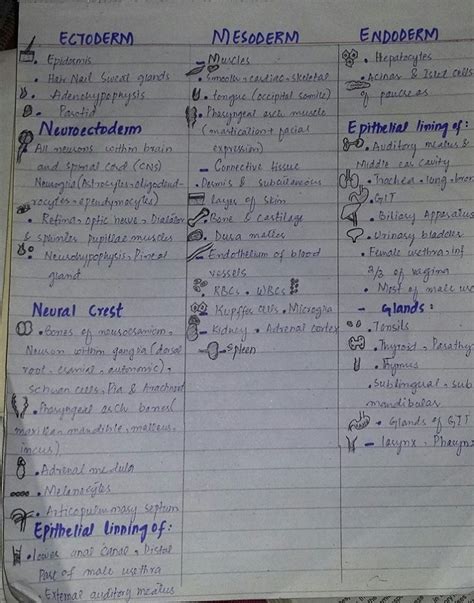 ECTODERM
• Epidermis
• Hair Nail Sweat glands
• Adenohypophysis
• Parotid
Neuroectoderm
• All neurons within brain
and spinal cord (CNS)
Neuroglia (Astrocytes, oligodend-
rocytes, ependymocytes)
• Retina, optic nerve, Dilator
& sphincter pupillae muscles
• Neurohypophysis, Pineal
gland
Neural Crest
• Bones of neurocranium,
Neuron within ganglia (dorsal
root, cranial, autonomic),
schwan cells, Pia & Arachnoid
• Pharyngeal arch bones (
mandible, malleus,
incus)
• Adrenal medulla
• Melanocytes
• Aorticopulmonary septum
Epithelial linning of:
• lower anal canal, Distal
Part of male urethra
• External auditory meatus
MESODERM
– Muscles
• Smooth, cardiac, skeletal
• tongue (occipital somite)
• Pharyngeal arch muscle
(mastication + facial
expression)
– Connective tissue
• Dermis & subcutaneous
layer of skin
• Bone & cartilage
• Dura matter
– Endothelium of blood
vessels
• RBCs, WBCs
– Kupffer cells, Microglia
– Kidney, Adrenal cortex
– Spleen
ENDODERM
• Hepatocytes
• Acinar & Islet cells
of pancreas
Epithelial lining of:
• Auditory meatus &
Middle ear cavity
• Trachea, lung, bron
• GIT
• Biliary Apparatus
• Urinary bladder
• Female urethra, Inf
2/3 of vagina
• Most of male ure
– Glands:
• Tonsils
• Thyroid, Parathy
• Thymus
• Sublingual, sub
mandibular
• Glands of GIT
– larynx, Pharynx